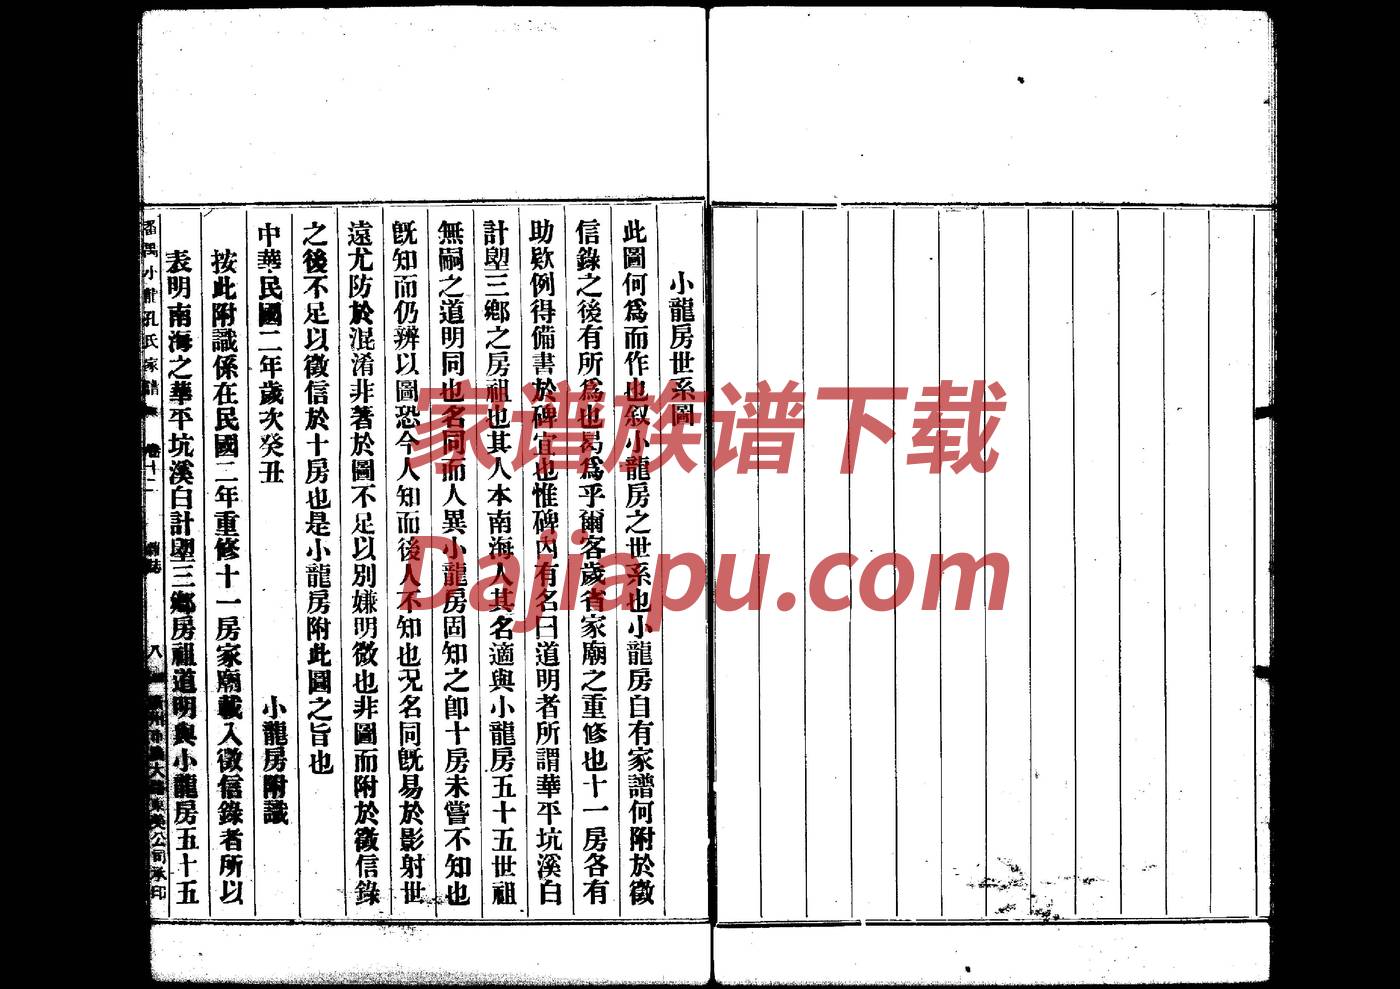 小龍房世系圖
此圖何爲而作也叙小龍房之世系也小龍房自有家譜何附於徵
信錄之後有所爲也曷爲乎爾客歲省家廟之重修也十一房各有
助欵例得備書於碑宜也惟碑內有名曰道明者所謂華平坑溪白
計壆三鄉之房祖也其人本南海人其名適與小龍房五十五世祖
無嗣之道明同也名同而人異小龍房固知之卽十房未嘗不知也
旣知而仍辨以圖恐今人知而後人不知也况名同旣易於影射世
遠尤防於混淆非著於圖不足以別嫌明微也非圖而附於徵信錄
之後不足以徵信於十房也是小龍房附此圖之旨也
中華民國二年歲次癸丑 小龍房附識
按此附識係在民國二年重修十一房家廟載入徵信錄者所以
表明南海之華平坑溪白計壆三鄉房祖道明與小龍房五十五
番禺小龍孔氏家譜 卷十二 八 大 東美公司承印
家谱族谱下载
Dajiapu.com